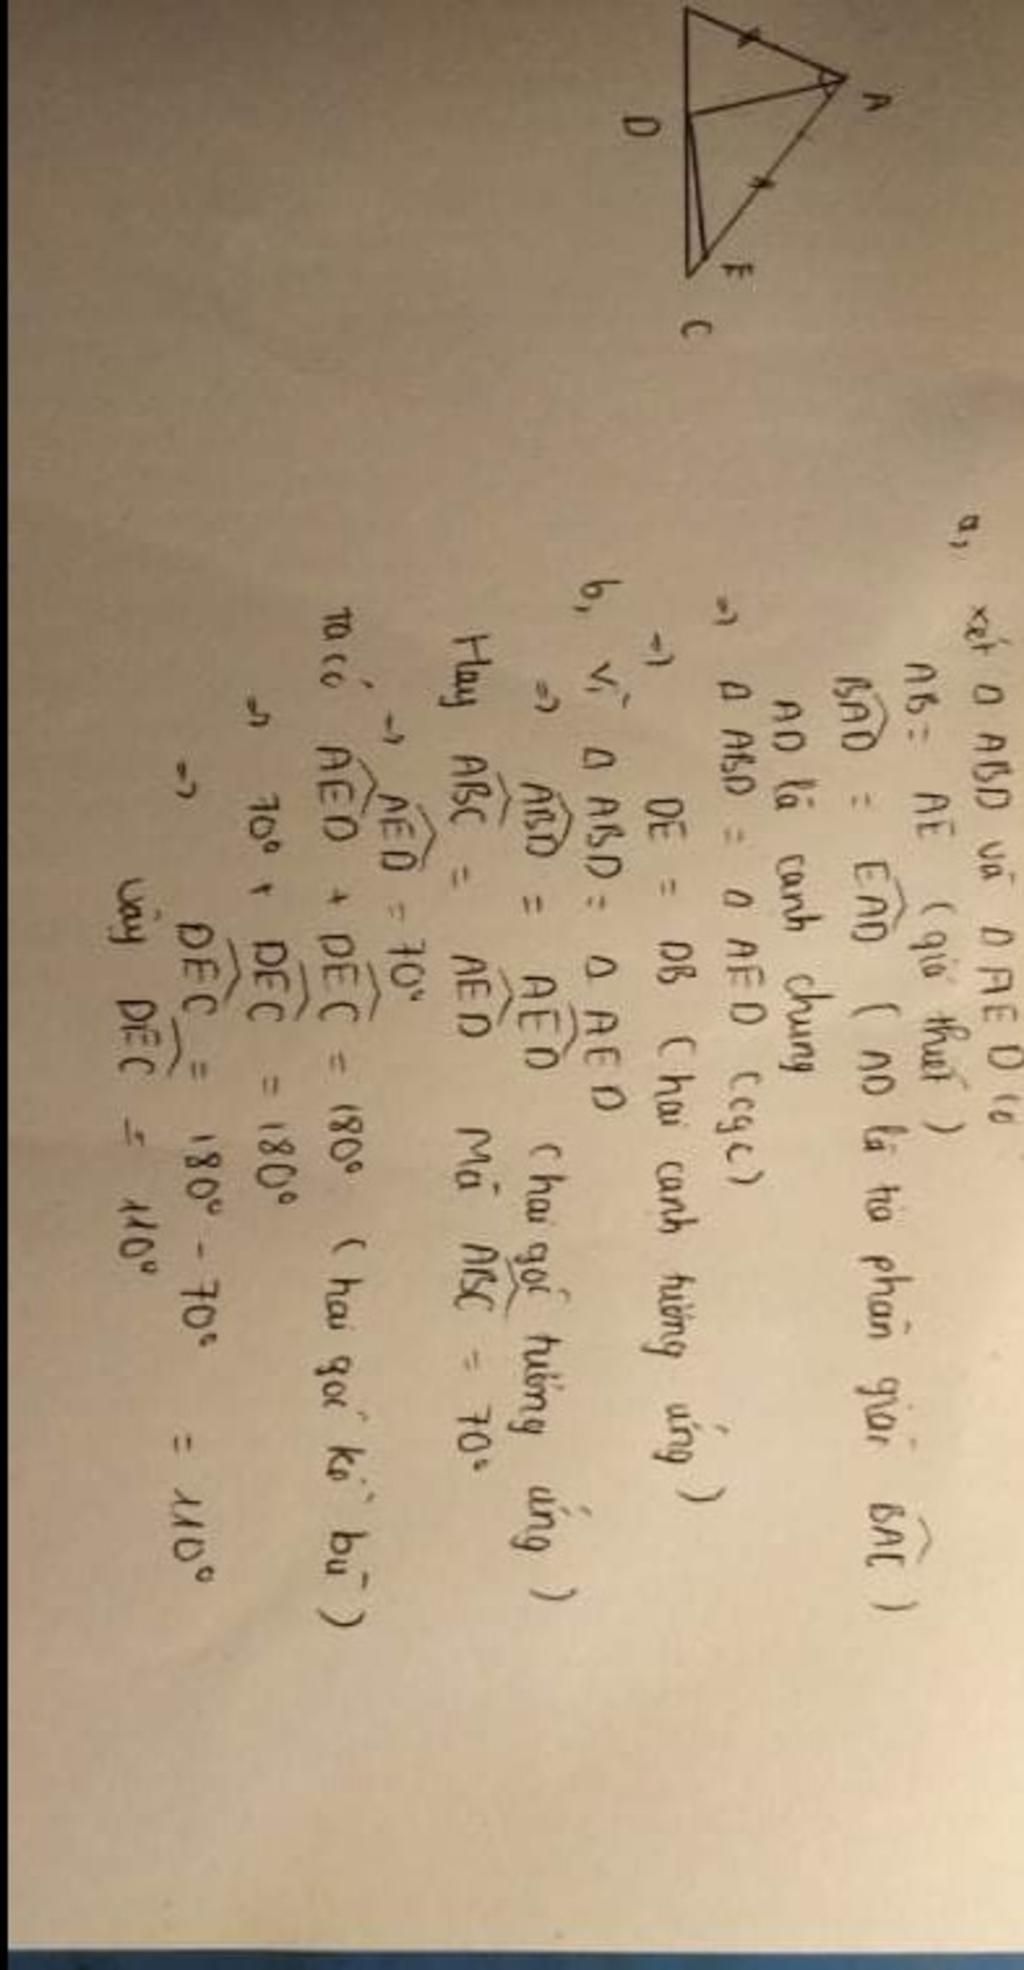 A
D
E
C
a, xét Δ ABD và Δ AED có
AB = AE (giả thiết)
BAD^ = EAD^ (AD là tia phân giác BAC^)
AD là cạnh chung
=> Δ ABD = Δ AED (cgc)
=> DE = DB (hai cạnh tương ứng)
b, Vì Δ ABD = Δ AED
=> ABD^ = AED^ (hai góc tương ứng)
Hay ABC^ = AED^ Mà ABC^ = 70°
=> AED^ = 70°
Ta có AED^ + DEC^ = 180° (hai góc kề bù)
=> 70° + DEC^ = 180°
=> DEC^ = 180° - 70° = 110°
Vậy DEC^ = 110°